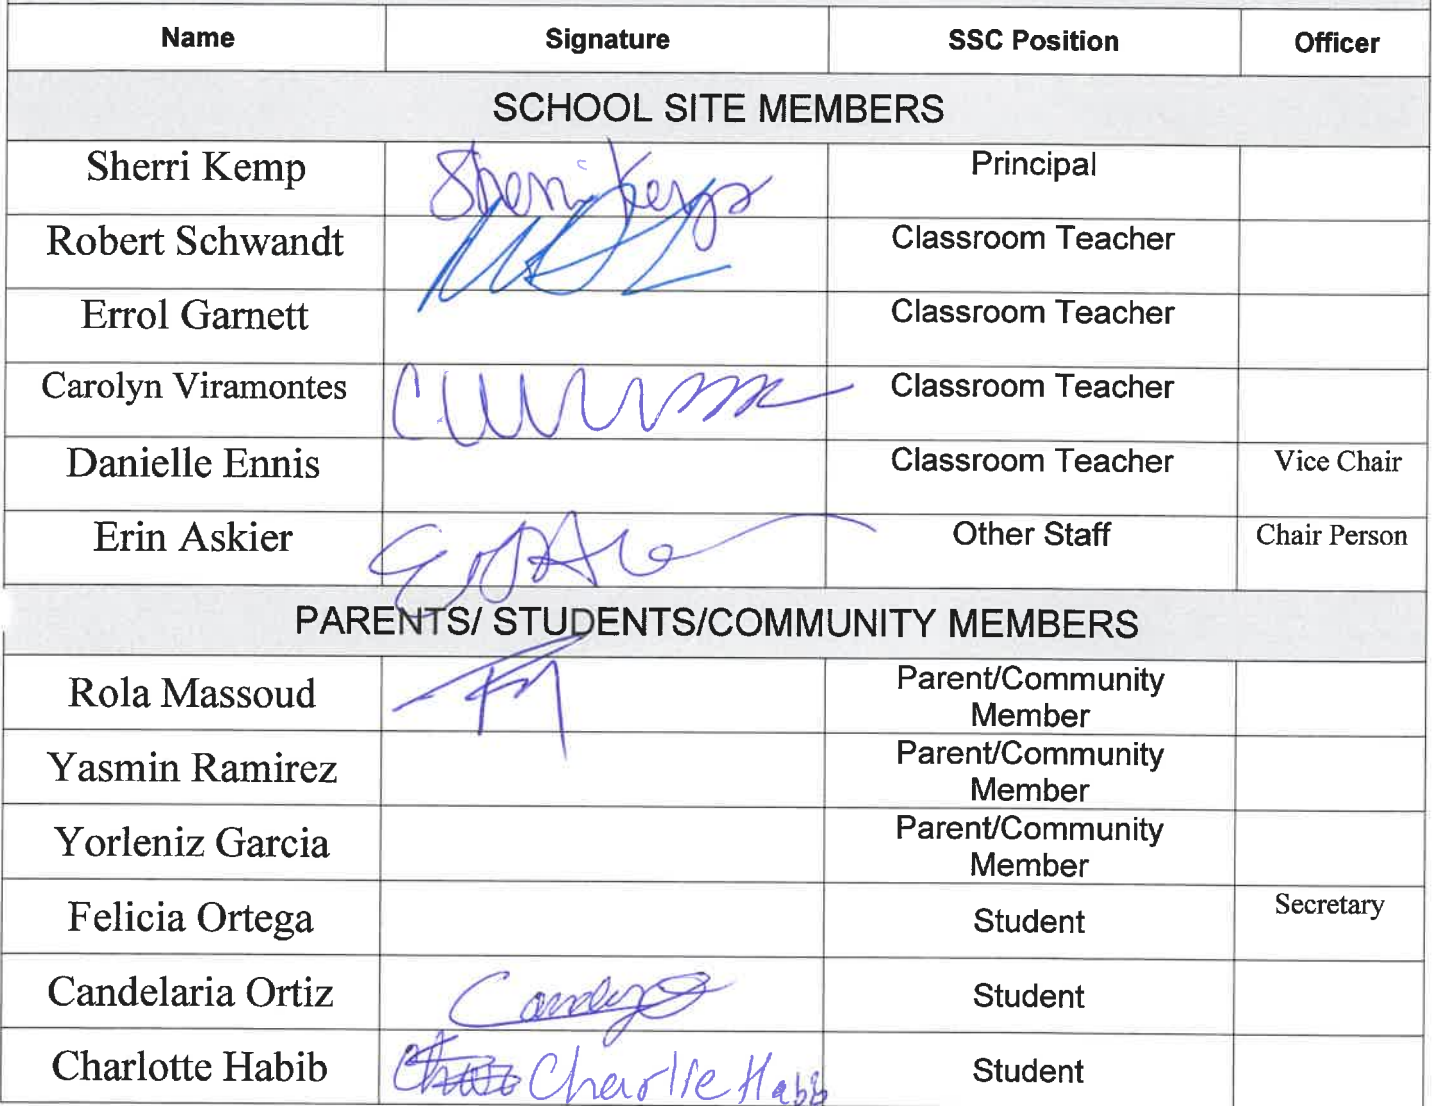 Name Signature SSC Position Officer
SCHOOL SITE MEMBERS
Sherri Kemp Sherri Kemp Principal
Robert Schwandt Classroom Teacher
Errol Garnett Classroom Teacher
Carolyn Viramontes Classroom Teacher
Danielle Ennis Classroom Teacher Vice Chair
Erin Askier Other Staff Chair Person
PARENTS/ STUDENTS/COMMUNITY MEMBERS
Rola Massoud Parent/Community
Member
Yasmin Ramirez Parent/Community
Member
Yorleniz Garcia Parent/Community
Member
Felicia Ortega Student Secretary
Candelaria Ortiz Student
Charlotte Habib Charlie Habib Student